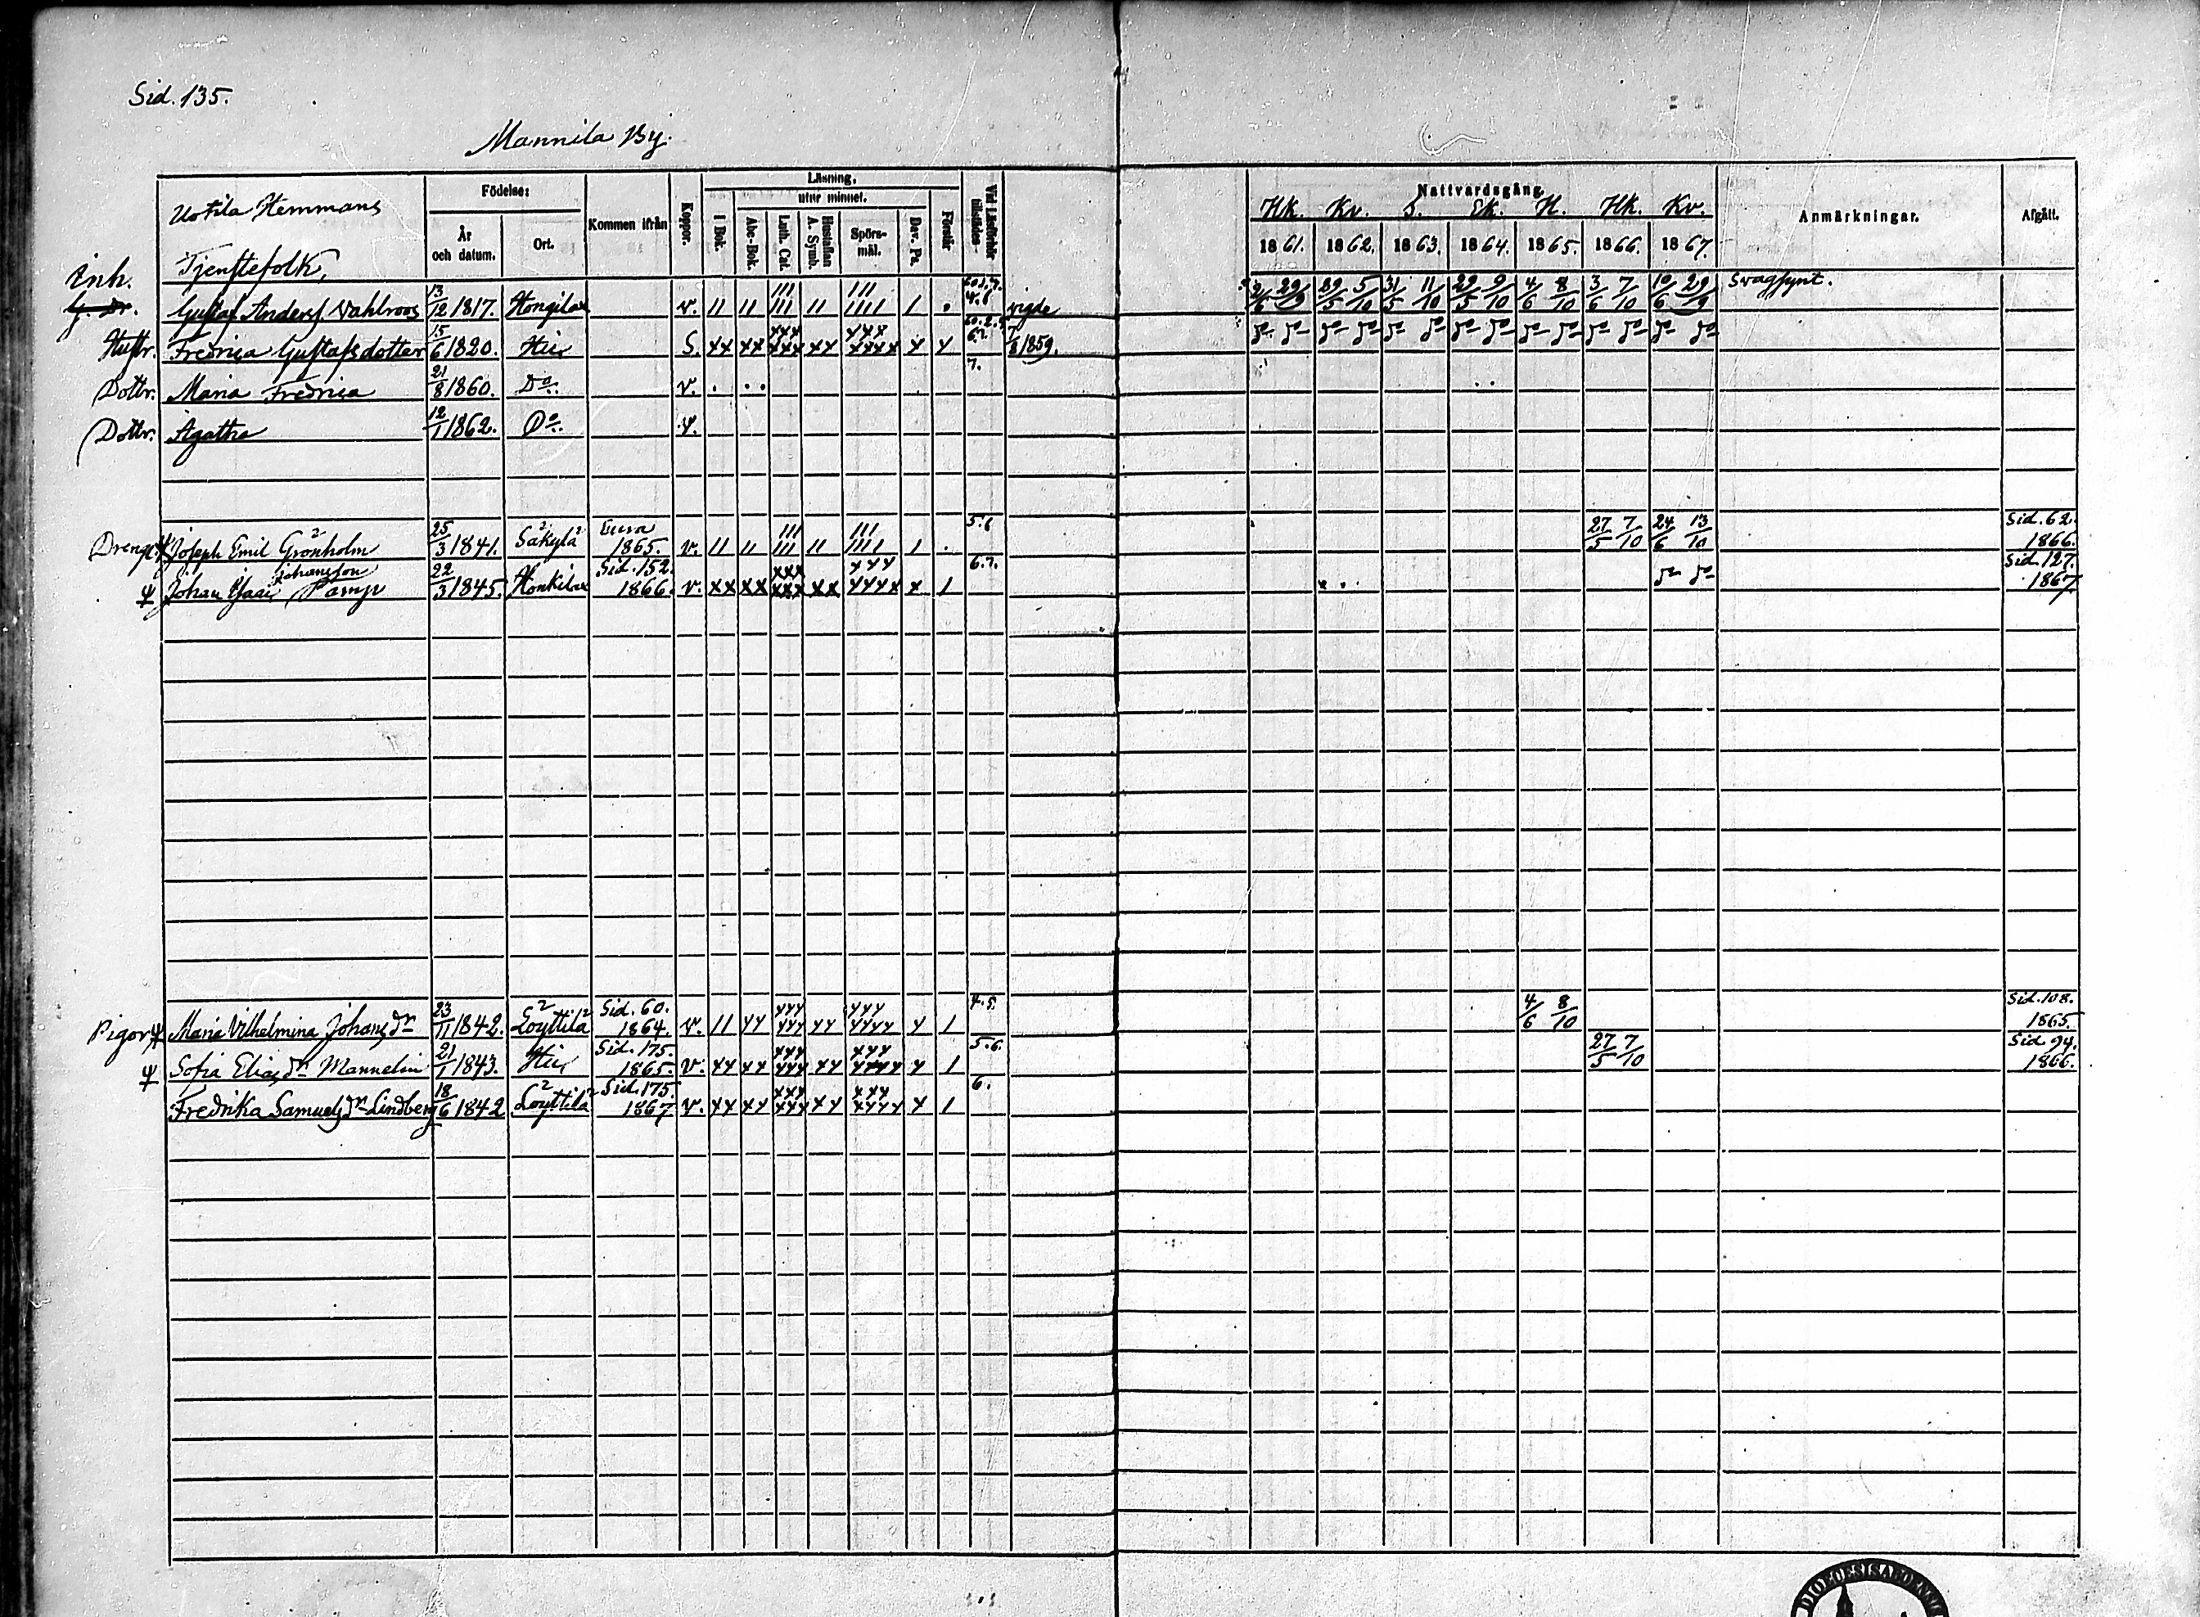 Sid. 135.
Mannila By.
Uotila Hemmans
Tjenstefolk,
Födelse:
År och datum.
Ort.
Kommen ifrån
Koppor.
Läsning,
utur minnet.
I Bok.
Abc-Bok.
Luth. Cat.
Hustaflan A. Symb.
Spörs-mål.
Dav. Ps.
Förstår
Vid Läsförhör tillstädes
Nattvardsgång.
Hk. Kv. S. Ek. H. Hk. Kv.
1861. 1862. 1863. 1864. 1865. 1866. 1867.
Anmärkningar.
Afgått.
Inh. Gustaf Anderss. Vahlroos 13/12 1817. Hongilax v. II II III III II III IIII I vigde 29/9 29/5 5/10 31/5 11/10 29/5 9/10 4/6 8/10 3/6 7/10 10/6 29/9 Svagsynt.
Hustr. Fredrica Gustafsdotter 15/6 1820. Här S. xx xx xxx xxx xx xxx xxxx x x 7/8 1859.
Dottr. Maria Fredrica 21/8 1860. Do. v. 7.
Dottr. Agatha 12/1 1862. Do.
Drengr. Joseph Emil Grönholm 25/3 1841. Säkylä Eura 1865. v. II II III III II III IIII I 5.6 27/5 7/10 24/6 13/10 Sid. 62. 1866.
Johan Isaac Johansson Pamp 22/3 1845. Honkilax Sid. 152. 1866. v. xx xx xxx xxx xx xxx xxxx x I 6.7. Sid. 127. 1867
Pigor Maria Vilhelmina Johansdr 23/11 1842. Löyttilä Sid. 60. 1864. v. II xx xxx xxx xx xxx xxxx x I 4.5. 4/6 8/10 Sid. 108. 1865.
Sofia Eliasdr Mannelin 21/1 1843. Här Sid. 175. 1865. v. xx xx xxx xxx xx xxx xxxx x I 5.6. 27/5 7/10 Sid. 94. 1866.
Fredrika Samuelsdr Lindberg 18/6 1842 Löyttilä Sid. 175. 1867 v. xx xx xxx xxx xx xxx xxxx x I 6.